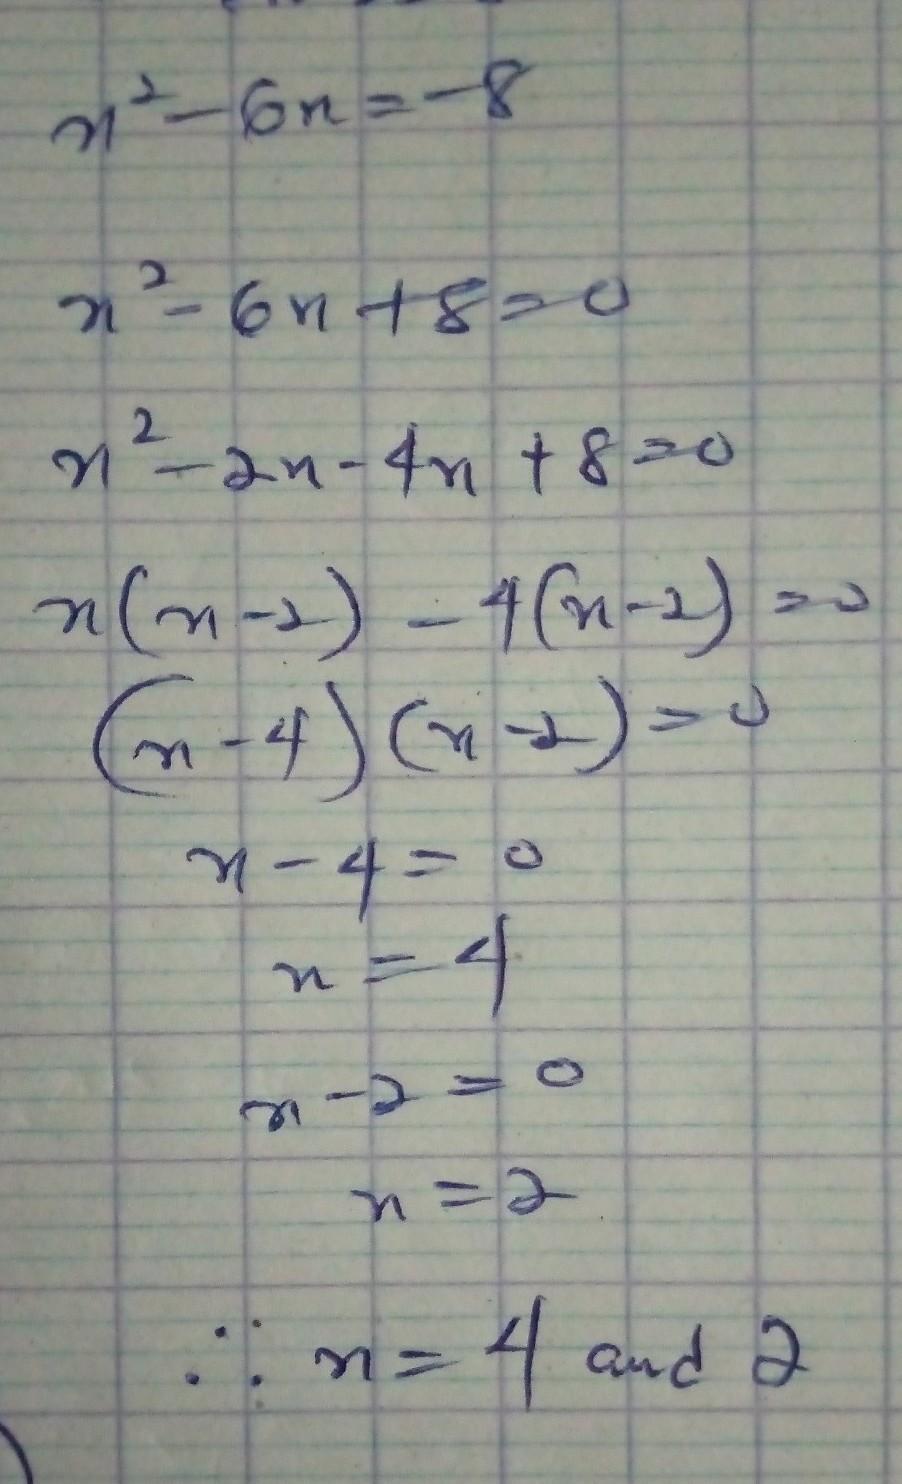 x² - 6x = -8
x² - 6x + 8 = 0
x² - 2x - 4x + 8 = 0
x(x - 2) - 4(x - 2) = 0
(x - 4)(x - 2) = 0
x - 4 = 0
x = 4
x - 2 = 0
x = 2
∴ x = 4 and 2